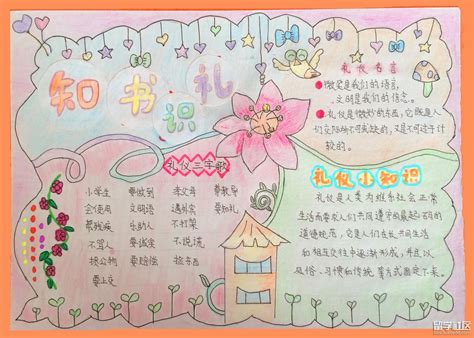 知书识礼
礼仪名言
微笑是我们的语言,
文明是我们的信念。
礼仪是微妙的东西,它既是人
们交际所不可或缺的,又是不可过于计
较的。
礼仪三字歌
小学生 要做到 孝父母 要教导
会使用 文明语 遇外宾 要知礼
帮残疾 乐助人 不打架
不骂人 要诚实 不说谎
损公物 要赔偿 拾东西
要上交
礼仪小知识
礼仪是人类为维系社会正常
生活而要求人们共同遵守的最起码的
道德规范,它是人们在长共同生活
和相互交往中逐渐形成,并且以
风俗、习惯和传统等方式固定下来。
留学社区